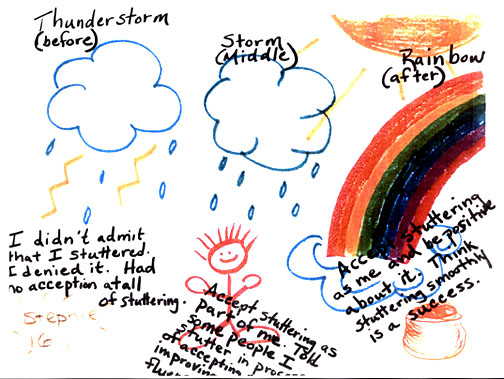 Thunderstorm
(before)
I didn't admit
that I stuttered.
I denied it. Had
no acception atall
of stuttering.
16
Storm
(Middle)
Accept stuttering as
part of me. Told
some people I
stutter in process
of acception
improving
Rainbow
(after)
Accept stuttering
as me and be positive
about it. Think
stuttering smoothly
is a success.